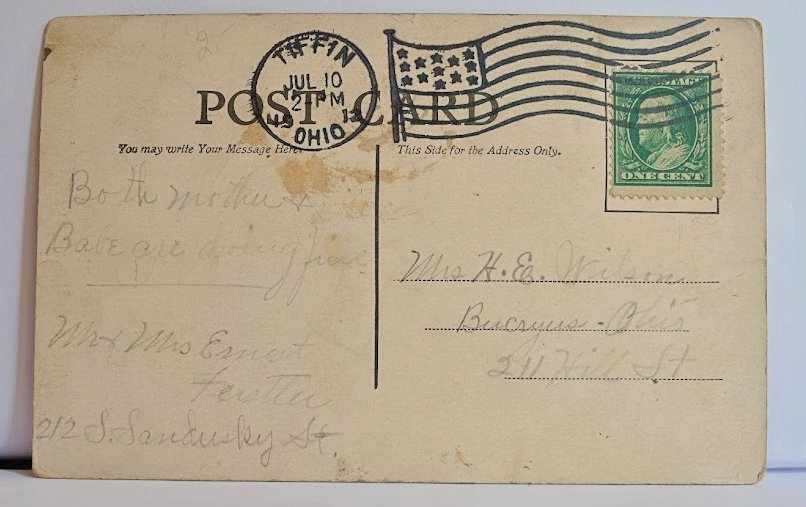 2
TIFFIN
JUL 10
2-PM
OHIO
POST CARD
You may write Your Message Here.
This Side for the Address Only.
ONE CENT
Both mother &
Babe are doing fine
Mr & Mrs Ernest
Ferstler
212 S. Sandusky St.
Mrs H. E. Wilson
Bucryus - Ohio
211 Hill St